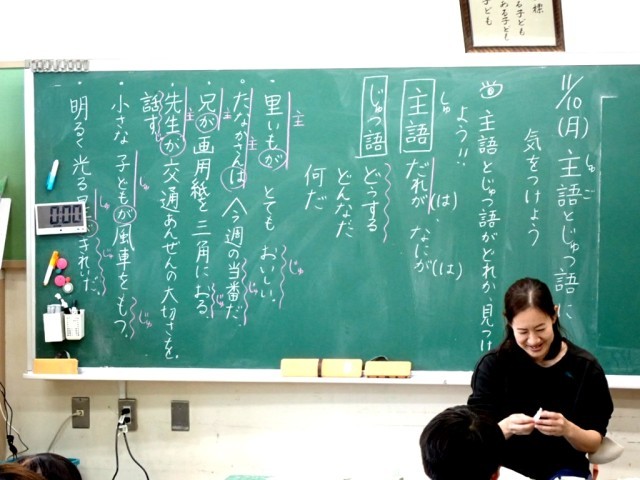 11/10(月) 主語とじゅつ語に
しゅご
気をつけよう
㋱ 主語とじゅつ語がどれか、見つけ
よう!!
しゅ
主語 だれが(は)・なにが(は)
じゅつ語 どうする
どんなだ
何だ
・里いもが とても おいしい。
主 じゅ
・たなかさんは 今週の当番だ。
主 じゅ
・兄が画用紙を三角におる。
主 じゅ
・先生が交通あんぜんの大切さを
話す。
主 じゅ
・小さな子どもが風車をもつ。
しゅ じゅ
・明るく光る星がきれいだ。
しゅ じゅ
000
様
る子ども
ある子ども
子ども